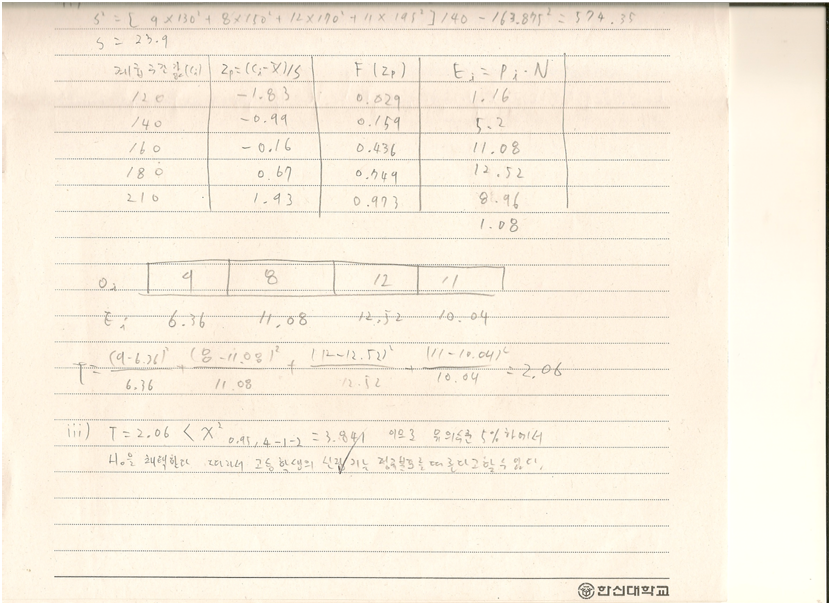 S² = [ 9×130² + 8×150² + 12×170² + 11×195² ] /40 - 163.875² = 574.35
S = 23.9
계급구간 (Ci) Zp=(Ci-X̄)/S F(Zp) Ei=Pi·N
120 -1.83 0.029 1.16
140 -0.99 0.159 5.2
160 -0.16 0.436 11.08
180 0.67 0.749 12.52
210 1.93 0.973 8.96
1.08
Oi 9 8 12 11
Ei 6.36 11.08 12.52 10.04
T = (9-6.36)²/6.36 + (8-11.08)²/11.08 + (12-12.52)²/12.52 + (11-10.04)²/10.04 = 2.06
iii) T=2.06 < X² 0.95, 4-1-2 = 3.841 이므로 유의수준 5%하에서
H₀을 채택한다 따라서 고등학생의 정규분포를 따른다고 할 수 있다.
한신대학교